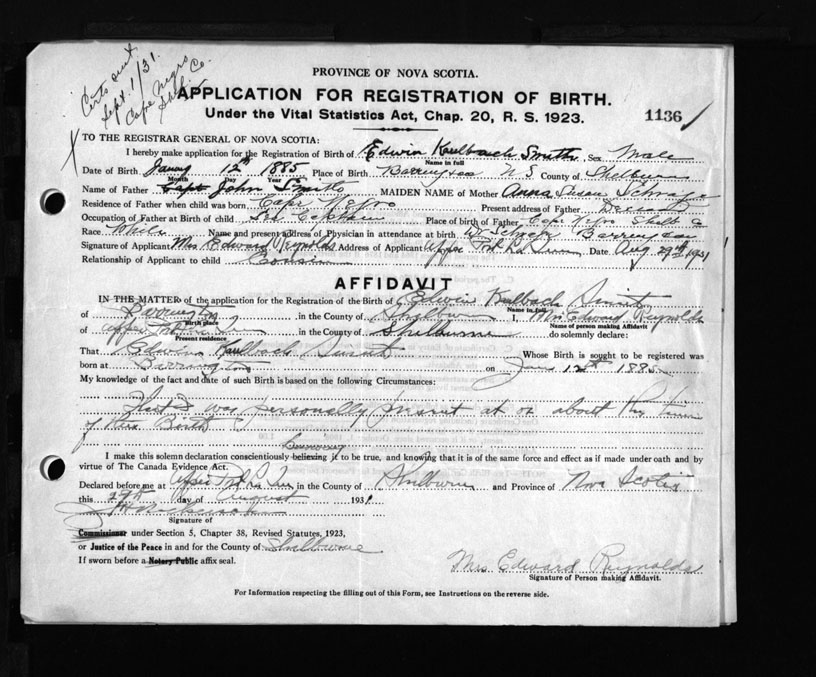 Certs sent
Sept. 1/31.
Cape Negro
Shel. Co.
PROVINCE OF NOVA SCOTIA.
APPLICATION FOR REGISTRATION OF BIRTH.
Under the Vital Statistics Act, Chap. 20, R. S. 1923.
1136
TO THE REGISTRAR GENERAL OF NOVA SCOTIA:
I hereby make application for the Registration of Birth of Edwin Kaulbach Smith Sex Male
Name in full
Date of Birth January 12th 1885 Place of Birth Barrington N S County of Shelburne
Month Day Year
Name of Father Capt John Smith MAIDEN NAME of Mother Anna Susan
Residence of Father when child was born Cape Negro Present address of Father Deceased
Occupation of Father at Birth of child Sea Captain Place of birth of Father Cape Negro Shelb Co
Race White Name and present address of Physician in attendance at birth Dr Barrington
Signature of Applicant Mrs Edward Reynolds Address of Applicant Upper Date Aug 29th 1931
Relationship of Applicant to child Cousin
AFFIDAVIT
IN THE MATTER of the application for the Registration of the Birth of Edwin Kulbach Smith
Name in full
of Barrington in the County of Shelburne I, Mrs Edward Reynolds
Birth place
Name of person making Affidavit
of Upper in the County of Shelburne do solemnly declare:
Present residence
That Edwin Kaulbach Smith Whose Birth is sought to be registered was
born at Barrington on Jan 12th 1885
My knowledge of the fact and date of such Birth is based on the following Circumstances:
That I was personally present at or about the time
of this Birth
I make this solemn declaration conscientiously believing it to be true, and knowing that it is of the same force and effect as if made under oath and by
virtue of The Canada Evidence Act.
Declared before me at Upper in the County of Shelburne and Province of Nova Scotia
this 29th day of August 1931
Signature of
Commissioner under Section 5, Chapter 38, Revised Statutes, 1923,
or Justice of the Peace in and for the County of Shelburne
If sworn before a Notary Public affix seal.
Mrs Edward Reynolds
Signature of Person making Affidavit.
For Information respecting the filling out of this Form, see Instructions on the reverse side.